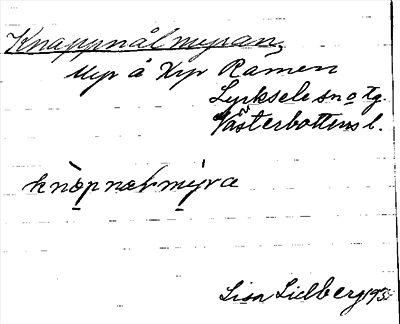 Knappnålmyran,
Myr å Xyr Ramen
Lycksele sn o tg.
Västerbottens l.
knòp nœl mýra
Lisa Lidberg 193